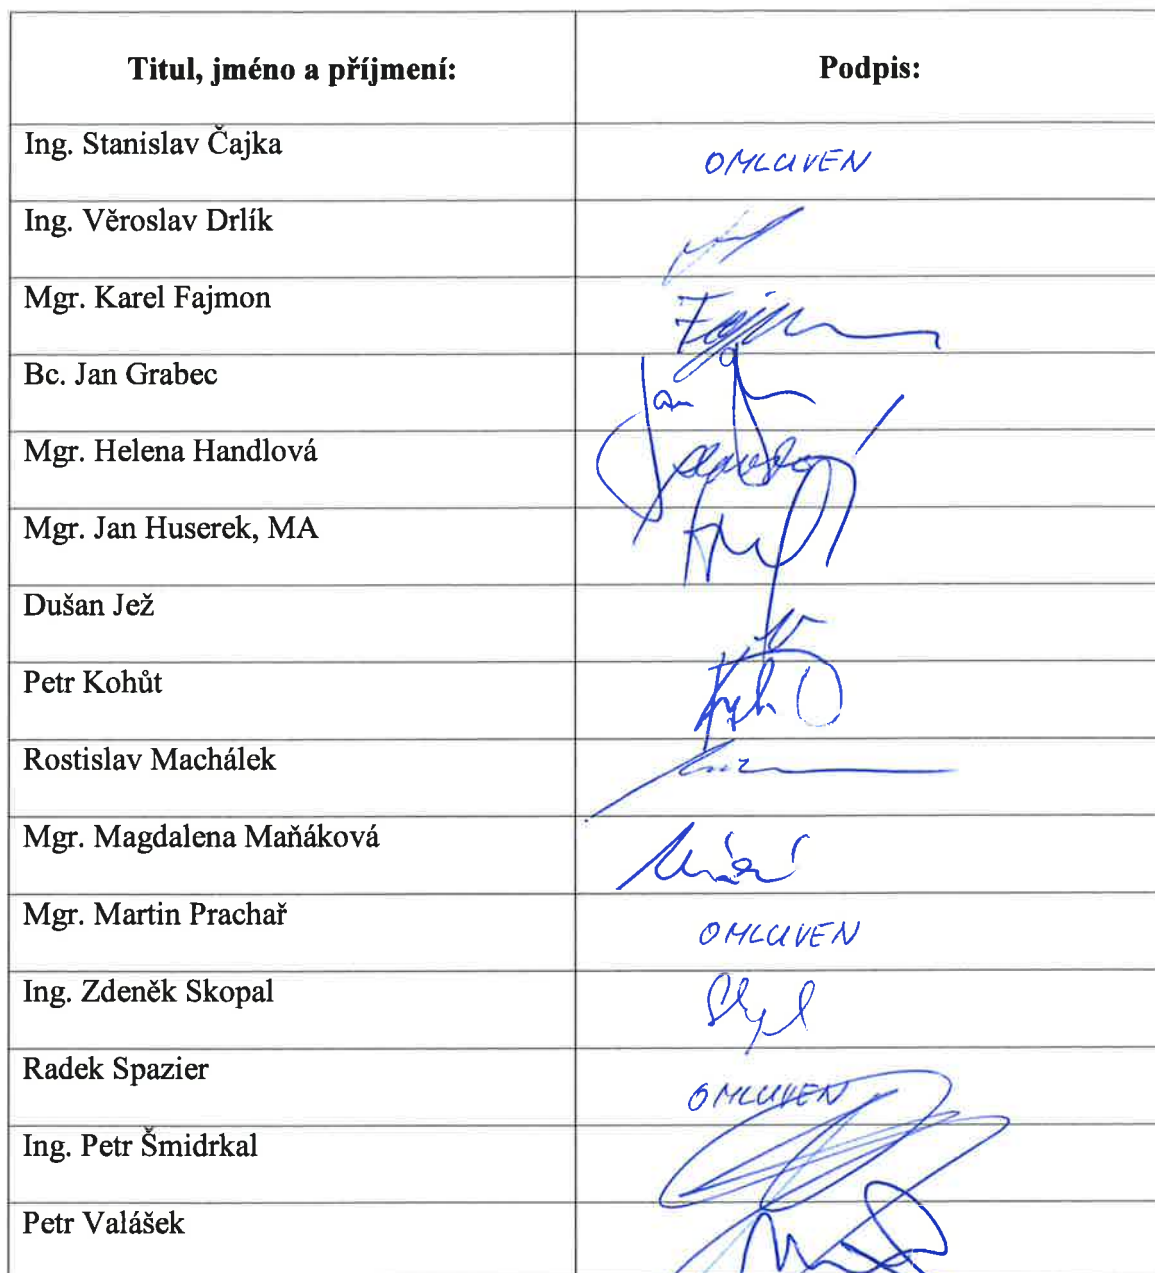 Titul, jméno a příjmení: Podpis:
Ing. Stanislav Čajka OMLUVEN
Ing. Věroslav Drlík
Mgr. Karel Fajmon
Bc. Jan Grabec Jan
Mgr. Helena Handlová
Mgr. Jan Huserek, MA
Dušan Jež
Petr Kohůt
Rostislav Machálek
Mgr. Magdalena Maňáková
Mgr. Martin Prachař OMLUVEN
Ing. Zdeněk Skopal
Radek Spazier OMLUVEN
Ing. Petr Šmidrkal
Petr Valášek